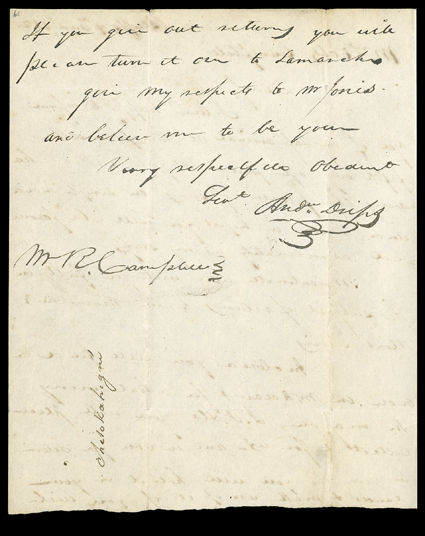 If you give out returning you will
please turn it over to Lamarche
give my respects to Mr Jones.
and believe me to be your
Very respectful Obedient
Sevt. Andw Drips
Mr R. Campbell